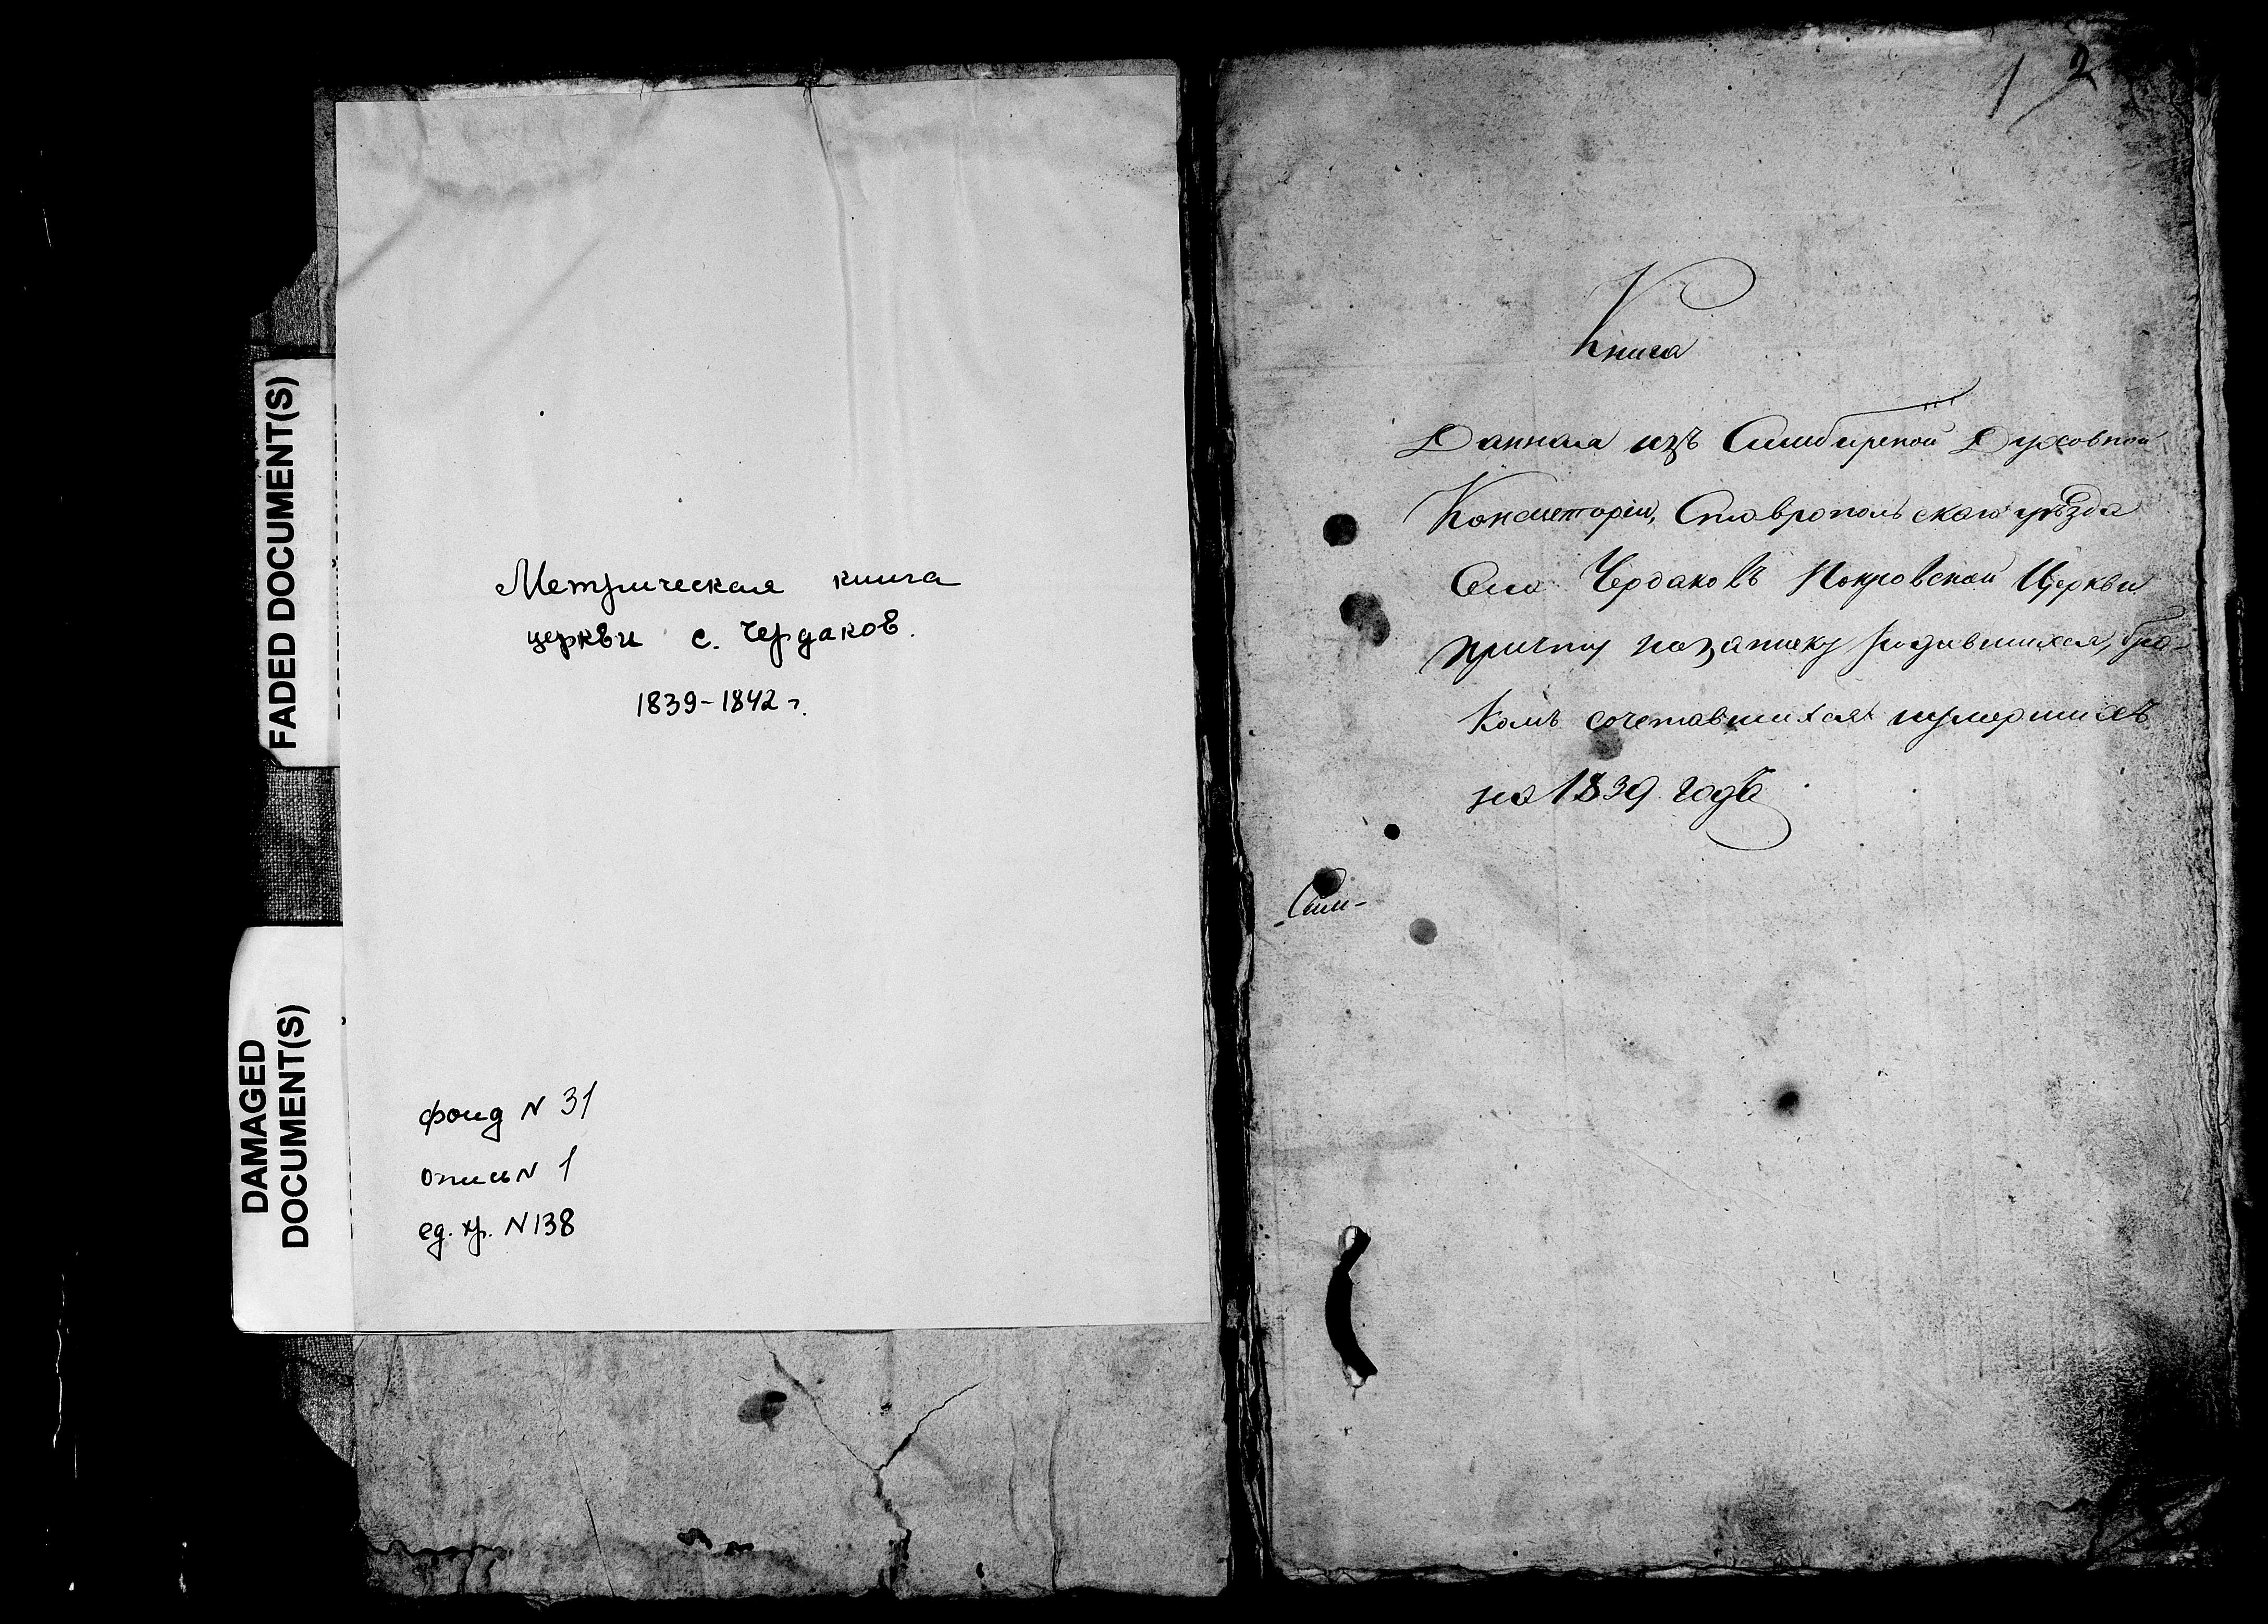 FADED DOCUMENT(S)
DAMAGED
DOCUMENT(S)
Метрическая книга
церкви с. Чердаков.
1839-1842 г.
фонд N 31
опись N 1
ед. хр. N 138
1 2
Книга
Данная изъ Симбирской Духовной
Консисторіи, Ставропольскаго уѣзда
Села Чердаковъ Покровской Церкви
причту назаписку родившихся, бра-
комъ сочетавшихся и умершихъ
на 1839 годъ
Сим-